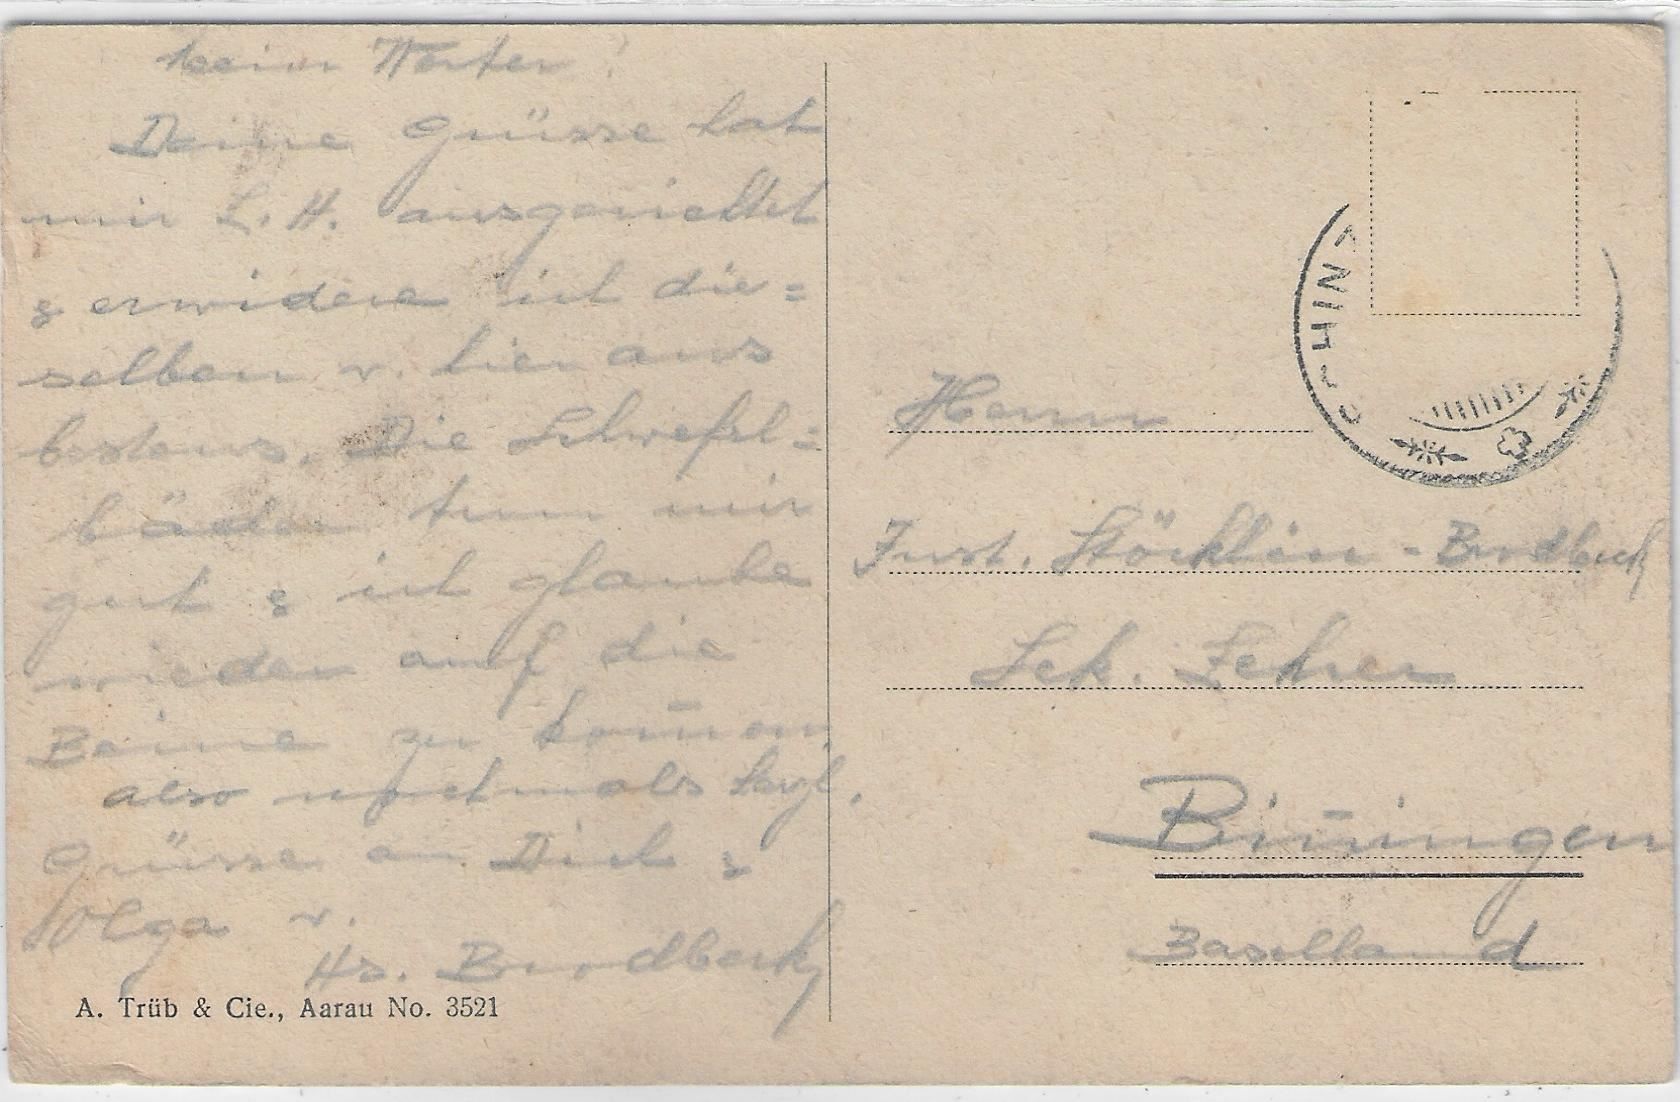 mein Werter!
Deine Grüsse hat
mir L. H. ausgerichtet
& erwidere ich die=
selben v. hier aus
bestens. Die Schwefel=
bäder tun mir
gut & ich glaube
wieder auf die
Beine zu kom̅en
also nochmals herzl.
Grüsse an Dich &
Olga v.
Hs. Brodbeck
A. Trüb & Cie., Aarau No. 3521
SCHINZ
Herrn
Just. Stöcklin - Brodbeck
Sek. Lehrer
Bin̅ingen
Baselland